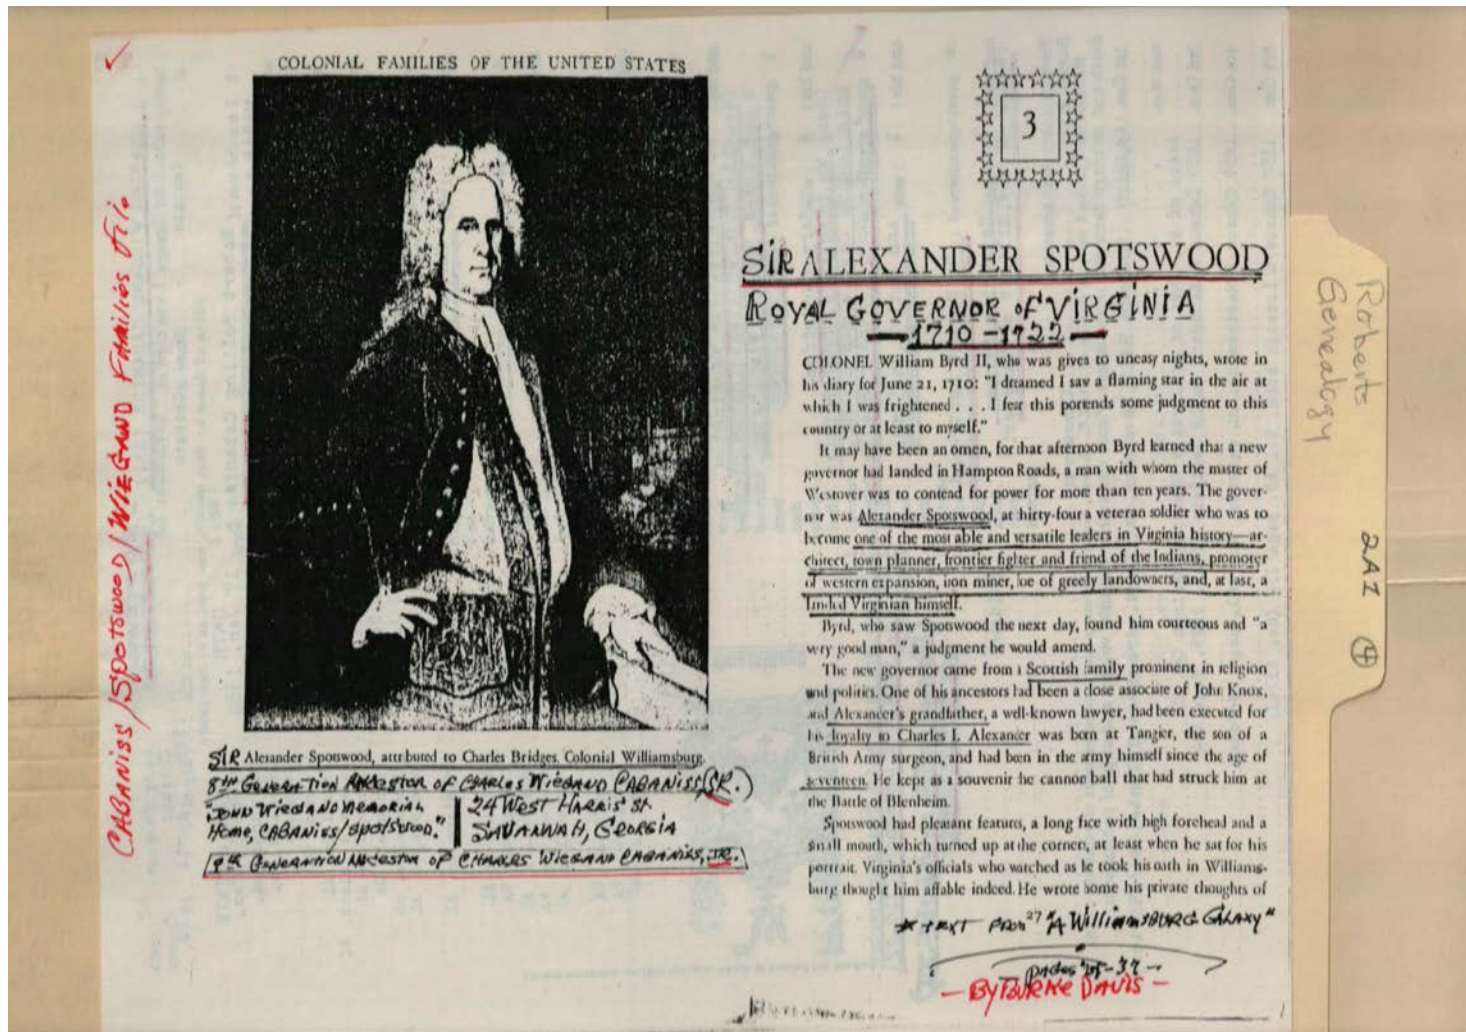 CABANISS/Spotswood/WIEGAND FAMILIES File
COLONIAL FAMILIES OF THE UNITED STATES
SIR Alexander Spotswood, attributed to Charles Bridges. Colonial Williamsburg.
8TH GENERATION ANCESTOR OF CHARLES WIEGAND CABANISS, (SR.)
"JOHN WIEGAND MEMORIAL
Home, CABANISS/Spotswood."
24 WEST HARRIS St
SAVANNAH, GEORGIA
9th GENERATION ANCESTOR OF CHARLES WIEGAND CABANISS, JR.
3
SIR ALEXANDER SPOTSWOOD
ROYAL GOVERNOR OF VIRGINIA
— 1710 - 1722 —
COLONEL William Byrd II, who was gives to uneasy nights, wrote in
his diary for June 21, 1710: "I dreamed I saw a flaming star in the air at
which I was frightened . . . I fear this portends some judgment to this
country or at least to myself."
It may have been an omen, for that afternoon Byrd learned that a new
governor had landed in Hampton Roads, a man with whom the master of
Westover was to contend for power for more than ten years. The gover-
nor was Alexander Spotswood, at thirty-four a veteran soldier who was to
become one of the most able and versatile leaders in Virginia history—ar-
chitect, town planner, frontier fighter and friend of the Indians, promoter
of western expansion, iron miner, foe of greedy landowners, and, at last, a
landed Virginian himself.
Byrd, who saw Spotswood the next day, found him courteous and "a
very good man," a judgment he would amend.
The new governor came from a Scottish family prominent in religion
and politics. One of his ancestors had been a close associate of John Knox,
and Alexander's grandfather, a well-known lawyer, had been executed for
his loyalty to Charles I. Alexander was born at Tangier, the son of a
British Army surgeon, and had been in the army himself since the age of
seventeen. He kept as a souvenir the cannon ball that had struck him at
the Battle of Blenheim.
Spotswood had pleasant features, a long face with high forehead and a
small mouth, which turned up at the corners, at least when he sat for his
portrait. Virginia's officials who watched as he took his oath in Williams-
burg thought him affable indeed. He wrote home his private thoughts of
27
* TEXT FROM "A WilliamSBURG GALAXY"
pages
— By BURKE DAVIS —
Roberts
Genealogy
2A1 4